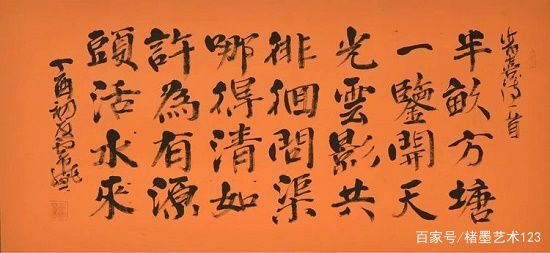 朱熹詩一首
半畝方塘
一鑒開天
光雲影共
徘徊問渠
哪得清如
許為有源
頭活水來
丁酉初夏
百家号/楮墨艺术123